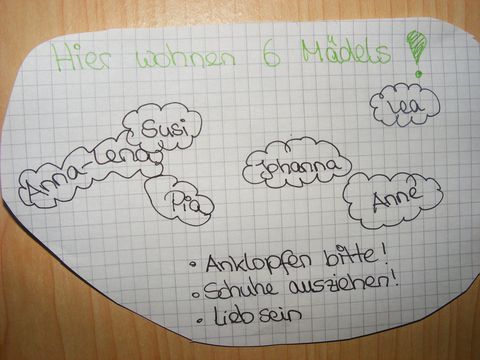 Hier wohnen 6 Mädels!
Lea
Susi
Anna-Lena
Johanna
Pia
Anne
• Anklopfen bitte!
• Schuhe ausziehen!
• Lieb sein